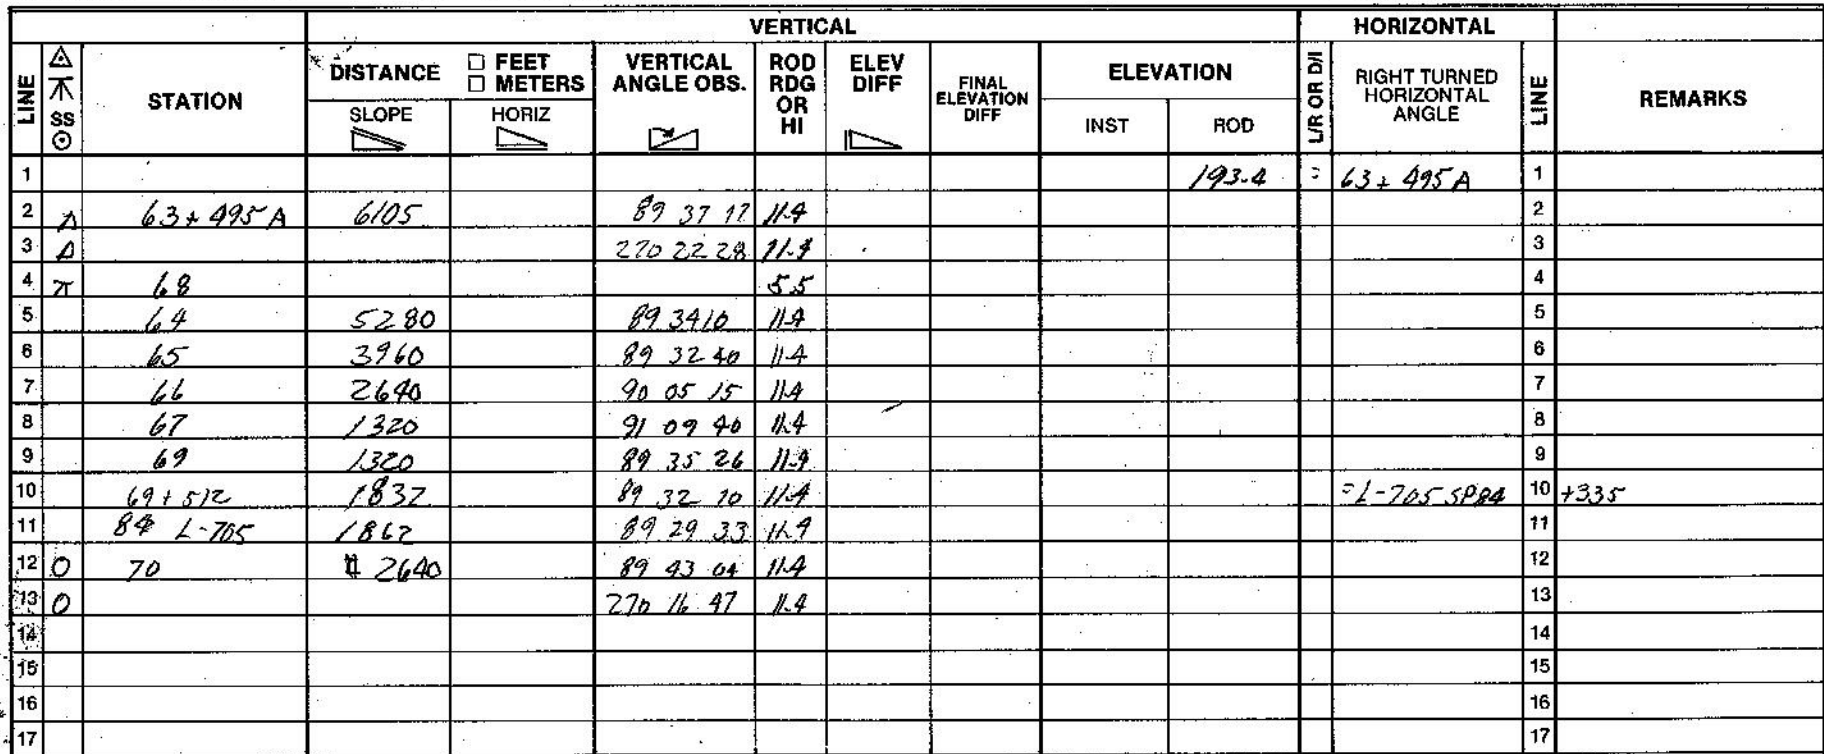 VERTICAL HORIZONTAL
LINE SS STATION DISTANCE □ FEET □ METERS SLOPE HORIZ VERTICAL ANGLE OBS. ROD RDG OR HI ELEV DIFF FINAL ELEVATION DIFF ELEVATION INST ROD L/R OR D/I RIGHT TURNED HORIZONTAL ANGLE LINE REMARKS
1 193.4 = 63+495A 1
2 63+495A 6105 89 37 17 11.4 2
3 270 22 28 11.4 3
4 68 5.5 4
5 64 5280 89 34 10 11.4 5
6 65 3960 89 32 40 11.4 6
7 66 2640 90 05 15 11.4 7
8 67 1320 91 09 40 11.4 8
9 69 1320 89 35 26 11.4 9
10 69+512 1832 89 32 10 11.4 =L-705 SP84 10 +335
11 84 L-705 1862 89 29 33 11.4 11
12 O 70 2640 89 43 04 11.4 12
13 O 270 16 47 11.4 13
14 14
15 15
16 16
17 17